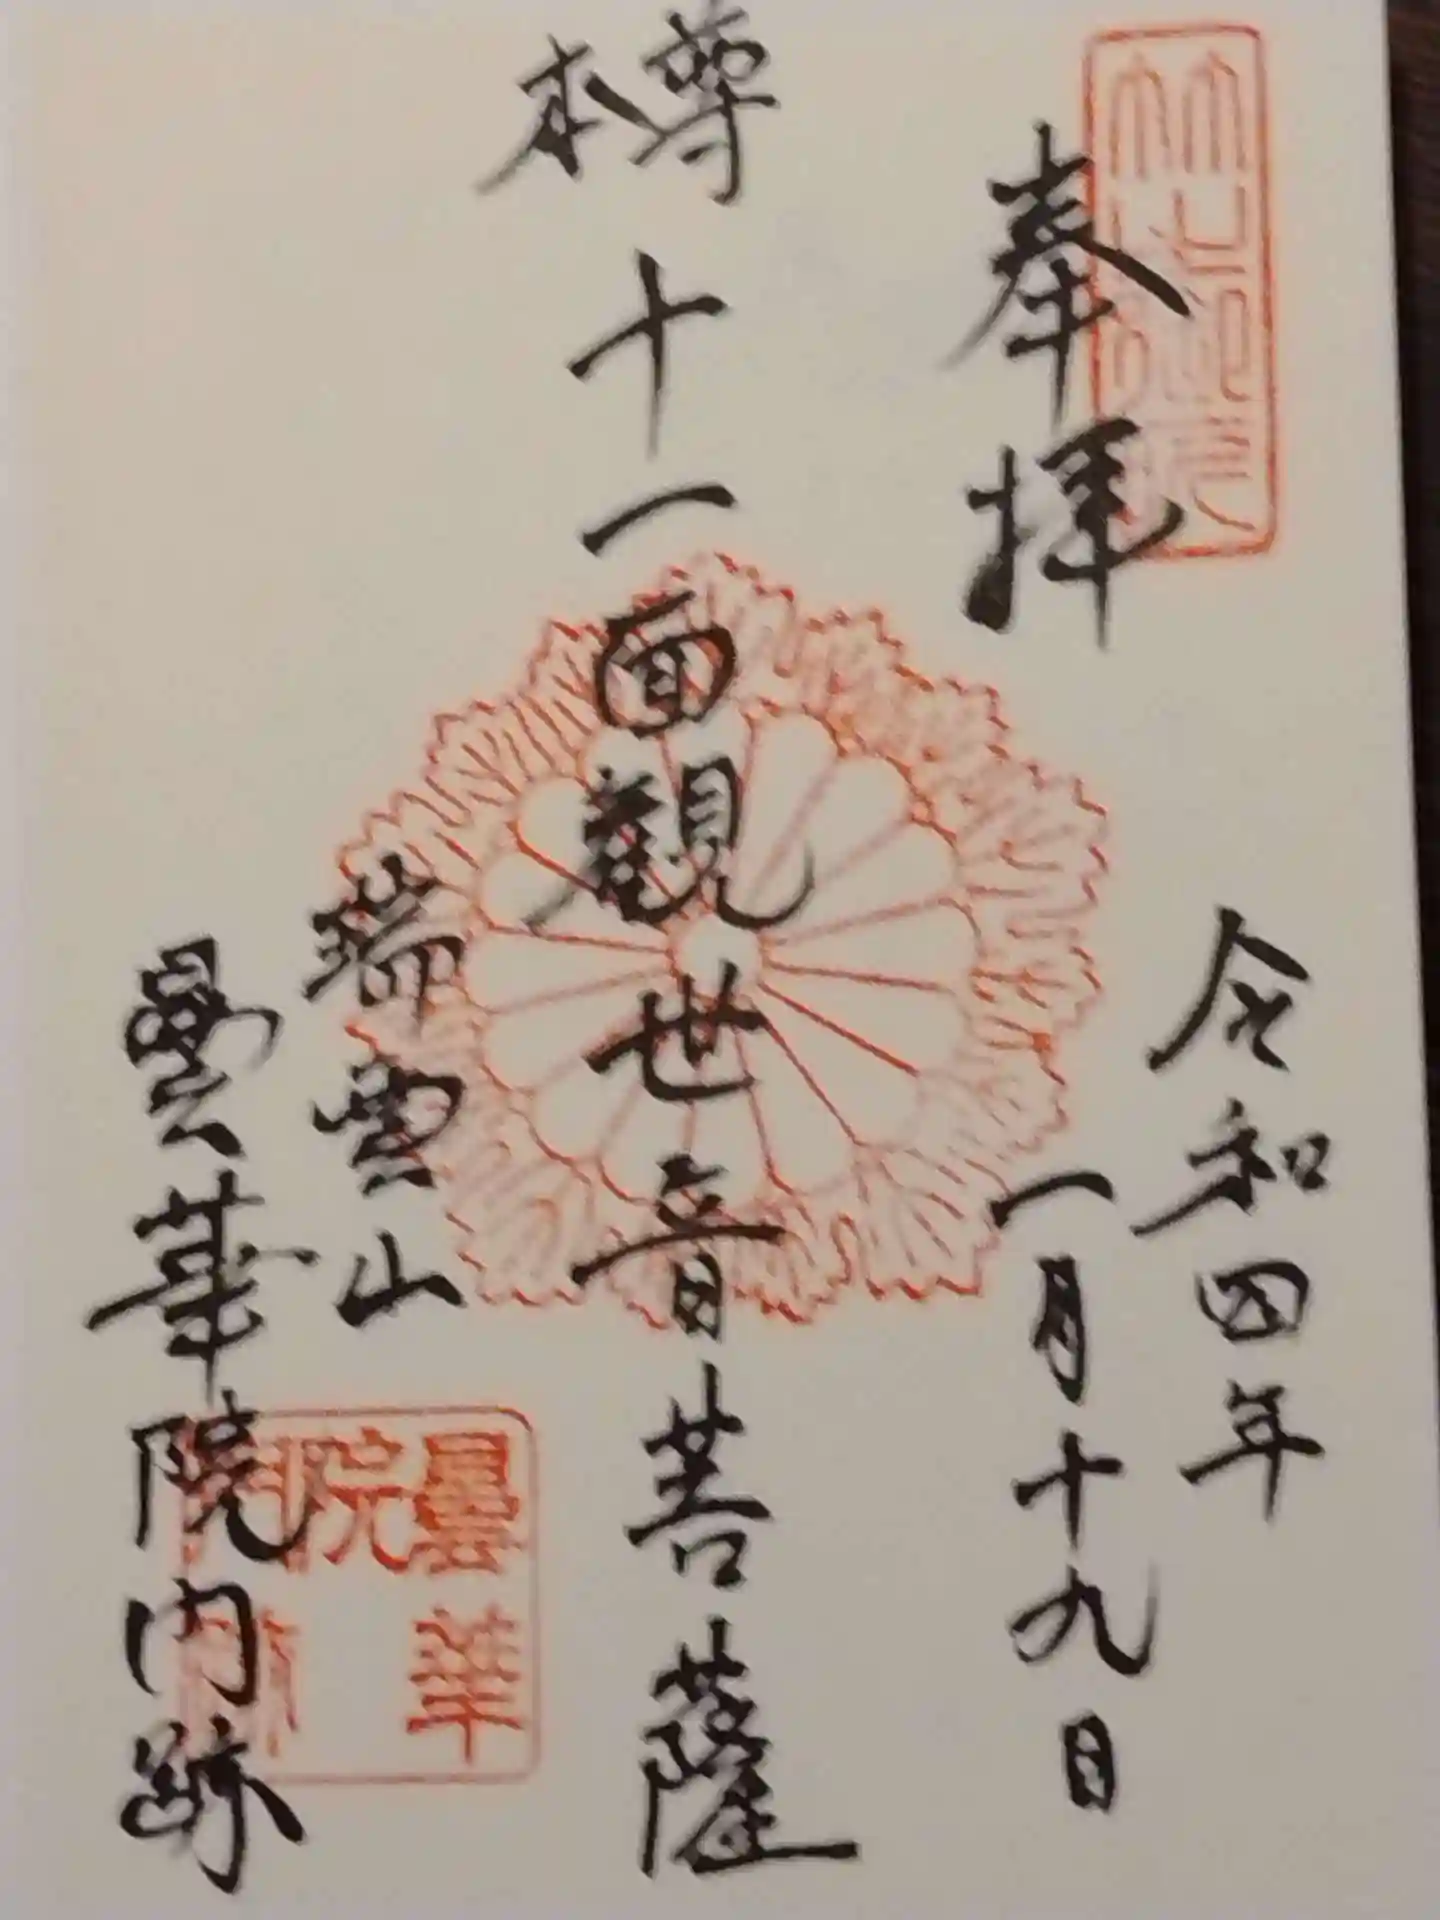 竹之御所
奉拝
令和四年
一月十九日
本尊
十一面觀世音菩薩
瑞雲山
曇華院門跡
曇華
院門跡